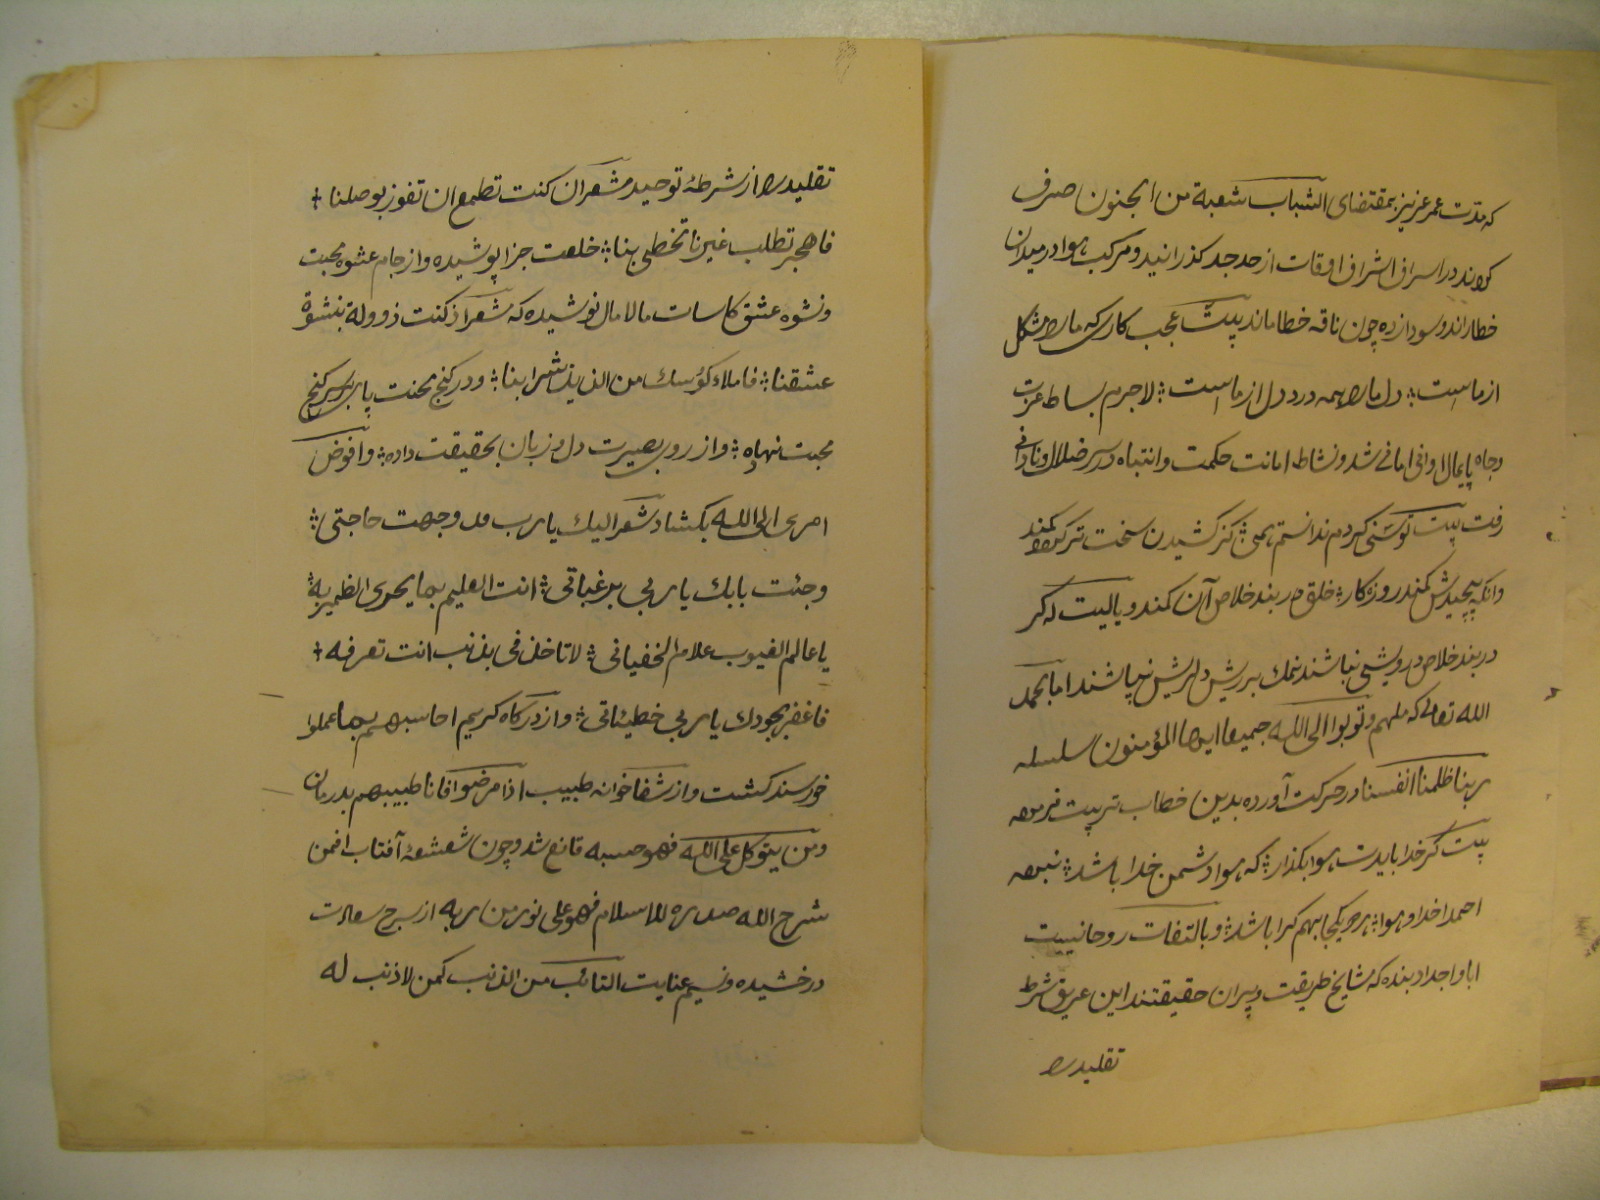 که مدت عمر عزیز بمقتضای الشباب شعبة من الجنون صرف
کراند در اسراف اشراف اوقات از حد جد کذرانید و مرکب هوا در میدان
خطا راند و سودا زده چون ناقه خطا ماند بیت عجب کاری که مارا مشکل
از ماست ؛ دل مارا همه درد دل از ماست ؛ لاجرم بساط عزت
وجاه پایمال اوانی امانی شد و نشاط امانت حکمت وانتباه در سر ضلال و نادانی
رفت بیت توسنی کردم ندانستم همی ؛ کز کشیدن سخت تر کردد کمند
وانکه پیچیدش کمند روزکار ؛ خلق در بند خلاص آن کمند و یالیت که کر
در بند خلاص درویشی نباشند نمك بر ریش دلریش نپاشند اما بحمد
الله تعالی که ملهم وتوبوا الی الله جمیعا ایها المؤمنون سلسله
ربنا ظلمنا انفسنا در حرکت آورده بدین خطاب تربیت فرمود
بیت کر خدا بایدت هوا بکذار ؛ که هوا دشمن خدا باشد ؛ نبود
احمدا خدا و هوا ؛ هر دو یکجا بهم کرا باشد ؛ و بالتفات روحانییت
ابا و اجداد بنده که مشایخ طریقت و پیران حقیقتند این عریق شرط
تقلید را
تقلید را از شرطۀ توحید شعر ان کنت تطمع ان تفوز بوصلنا
فاهجر تطلب غیرنا تخطی بنا ؛ خلعت جزا پوشیده و از جام عشوه محبت
ونشوه عشق کاسات مالامال نوشیده که شعر اذ کنت ذو وله بنشوة
عشقنا ؛ فاملاء کؤسك من الذیذ شرابنا ؛ و در کنج محنت پا بر سر کنج
محبت نهاده ؛ و از روی بصیرت دل و زبان بحقیقت داده ؛ وافوض
امری الی الله بکشاد شعر الیك یا رب قد وجهت حاجتی ؛
وجئت بابك یا ربی برغباتی ؛ انت العلیم بما یحوی الظمیر به
یا عالم الغیوب علام الخفیاتی ؛ لا تاخذنی بذنب انت تعرفه
فاغفر بجودك یا ربی خطیئاتی ؛ و از درکاه کریم احاسبهم بما عملوا
خورسند کشت و از شفاخوانه طبیب اذا مرضوا فانا طبیبهم بدرمان
ومن یتوکل علی الله فهو حسبه قانع شد و چون شعشعۀ آفتاب افمن
شرح الله صدره للاسلام فهو علی نور من ربه از برج سعادت
درخشیده و نسیم عنایت التائب من الذنب کمن لا ذنب له